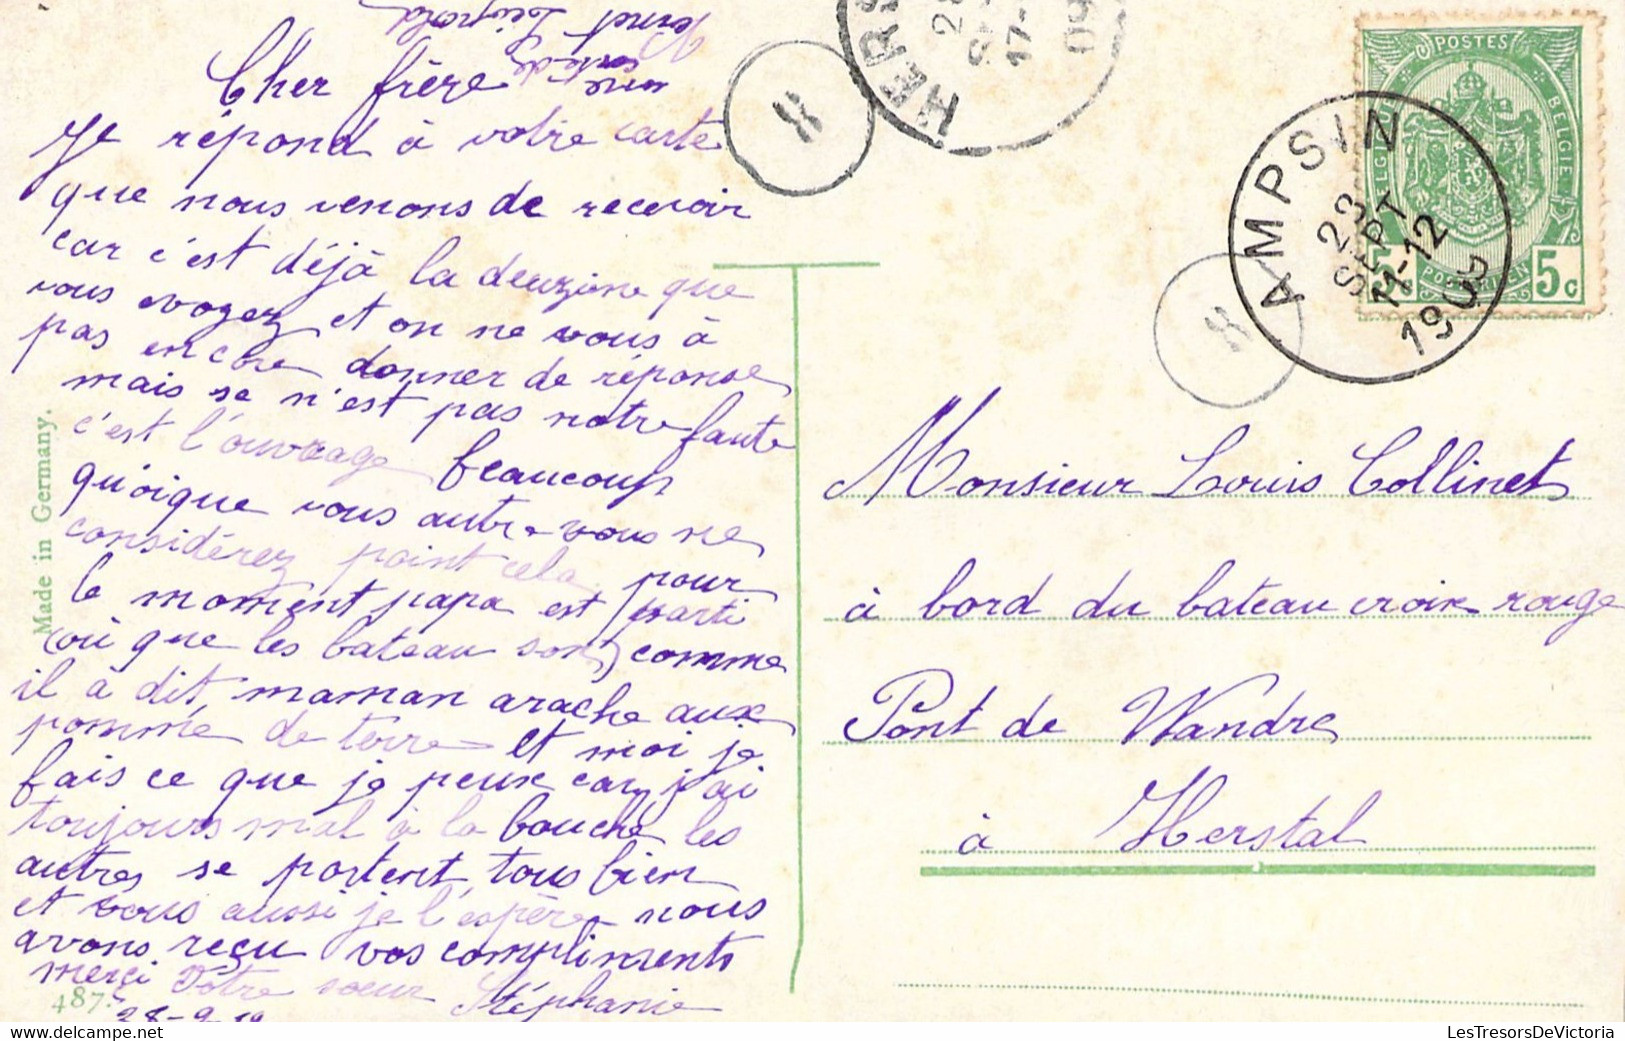 Cher frère
Je répond à votre carte
que nous venons de recevoir
car c'est déjà la deuzieme que
vous evoyez et on ne vous à
pas encore donner de réponse
mais se n'est pas notre faute
c'est l'ouvrage beaucoup
quoique vous autre vous ne
considérez point cela pour
le moment papa est parti
(où que les bateau son) comme
il à dit maman arache aux
pomme de terre et moi je
fais ce que je peux car j'ai
toujours mal à la bouche les
autres se portent tous bien
et vous aussi je l'espère nous
avons reçu vos compliments
merçi Votre soeur Stéphanie
Made in Germany.
487.
HERS
17-
09
X
POSTES
BELGIE
5c
AMPSIN
23
SEPT
11-12
19
X
Monsieur Louis Collinet
à bord du bateau croix rouge
Pont de Wandre
à Herstal
LesTresorsDeVictoria